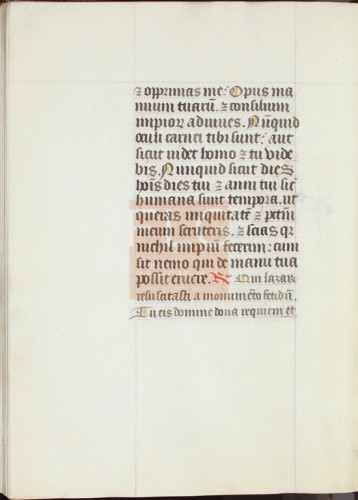 ⁊ opprimas me: Opus ma
nuum tuarū. ⁊ consilium
impior adiuues. Nūquid
oculi carnei tibi sunt: aut
sicut uidet homo ⁊ tu vide
bis. Nunquid sicut dies
hoīs dies tui ⁊ anni tui sic̄
humana sunt tempora. ut
queras iniquitatē ⁊ petm̄
meum scruteris. ⁊ scias qr
nichil impiū fecerim: cum
sit nemo qui de manu tua
possit eruere. R Qui lazarū
resuscitasti a monumēto fetidū.
Tu eis domine dona requiem et